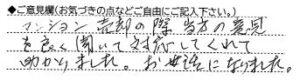 ◆ご意見欄(お気づきの点などご自由にご記入下さい。)
マンション売却の際 当方の意見
を良く聞いて対応してくれて
助かりました。お世話になりました。